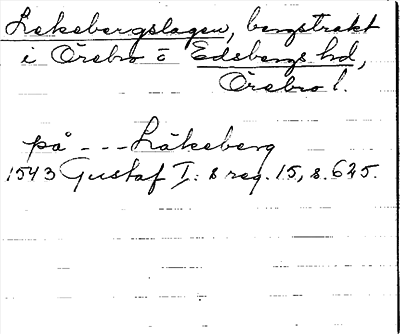 Lekebergslagen, bergstrakt
i Örebro o Edsbergs hd,
Örebro l.
på - - - Läkeberg
1543 Gustaf I:s reg. 15, s. 625.